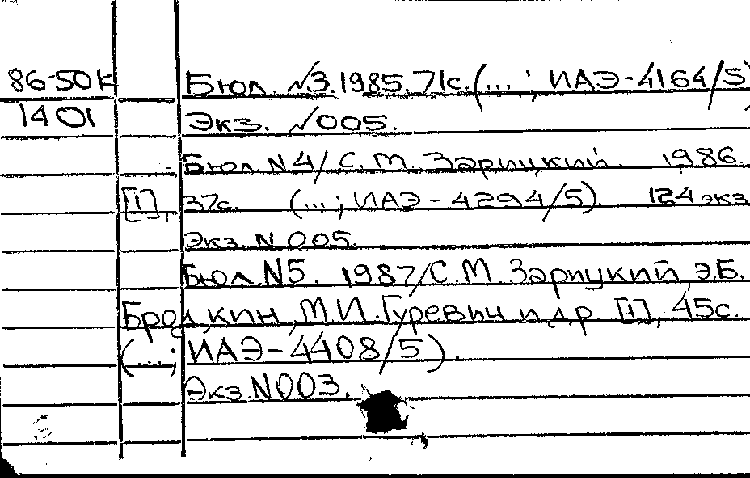 86-50К Бюл. №3. 1985. 71с. (...; ИАЭ-4164/5)
1401 Экз. №005.
Бюл N4/ С. М. Зарицкий. 1986.
[1], 37с. (...; ИАЭ-4294/5) 124 экз
Экз. N 005.
Бюл. N5. 1987/С М. Зарицкий, Э.Б.
Бродкин, М.И. Гуревич и др [1], 45с.
(...; ИАЭ-4408/5).
Экз. N003.